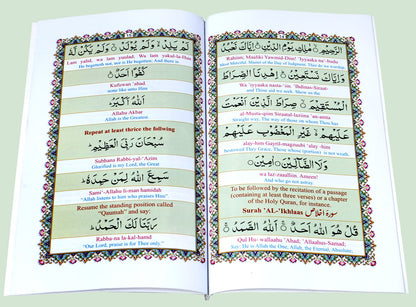 لَمْ يَلِدْ ۙ وَلَمْ يُوْلَدْ ۙ وَلَمْ يَكُنْ لَّهٗ
Lam yalid, wa lam yuulad; Wa lam yakul-la-Huu
He begetteth not, nor is He begotten; And there is
كُفُوًا اَحَدٌ
Kufuwan 'ahad.
none like unto Him
اَللّٰهُ اَكْبَرُ
Allahu Akbar
Allah is the Greatest
Repeat at least thrice the follwing
سُبْحَانَ رَبِّيَ الْعَظِيْمِ
Subhana Rabbi-yal-'Azim
Glorified is my Lord, the Great
سَمِعَ اللّٰهُ لِمَنْ حَمِدَهٗ
Sami'-Allahu li-man hamidah
"Allah listens to him who praises Him".
Resume the standing position called
"Qaumah" and say:
رَبَّنَا لَكَ الْحَمْدُ
Rabba-na la-kal-hamd
"Our Lord, praise is for Thee only."
الرَّحِيْمِ ۙ مٰلِكِ يَوْمِ الدِّيْنِ ۙ اِيَّاكَ نَعْبُدُ
Rahim, Maaliki Yawmid-Diin! 'Iyyaaka na'-budu
Most Merciful. Master of the Day of Judgment. Thee do we worship.
وَاِيَّاكَ نَسْتَعِيْنُ ۙ اِهْدِنَا الصِّرَاطَ
Wa 'iyyaaka nasta-'iin. 'Ihdinas-Siraat-
and Thine aid we seek. Show us the
الْمُسْتَقِيْمَ ۙ صِرَاطَ الَّذِيْنَ اَنْعَمْتَ
al-Mustaqiim Siraatal-laziina 'an-amta
Straight way, The way of those on whom Thou hast
عَلَيْهِمْ ۙ غَيْرِ الْمَغْضُوْبِ عَلَيْهِمْ
alay-him Gayril-magzuubi 'alay-him
bestowed Thy Grace, Those whose (portion) is not wrath,
وَلَا الضَّآلِّيْنَ ۙ اٰمِيْنَ
wa laz-zaalliin. Ameen!
And who go not astray.
To be followed by the recitation of a passage
(containing at least three verses) or a chapter
of the Holy Quran, for instance.
Surah 'AL-'Ikhlaas سورة اخلاص
قُلْ هُوَ اللّٰهُ اَحَدٌ ۙ اَللّٰهُ الصَّمَدُ
Qul Hu-wallaahu 'Ahad, 'Allaahus-Samad;
Say: He is Allah the One, Allah, the Eternal, Absolute;